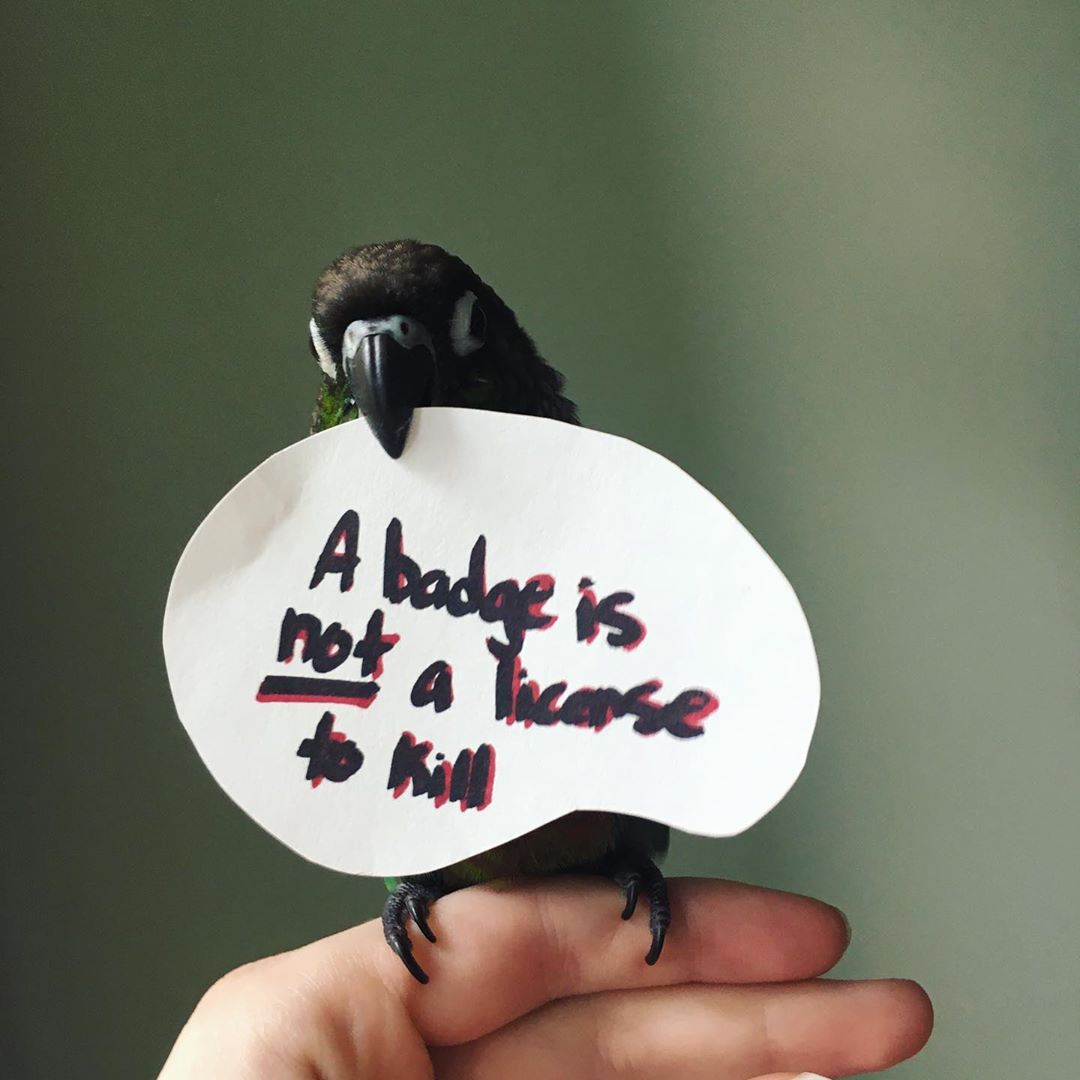 A badge is
not a license
to kill